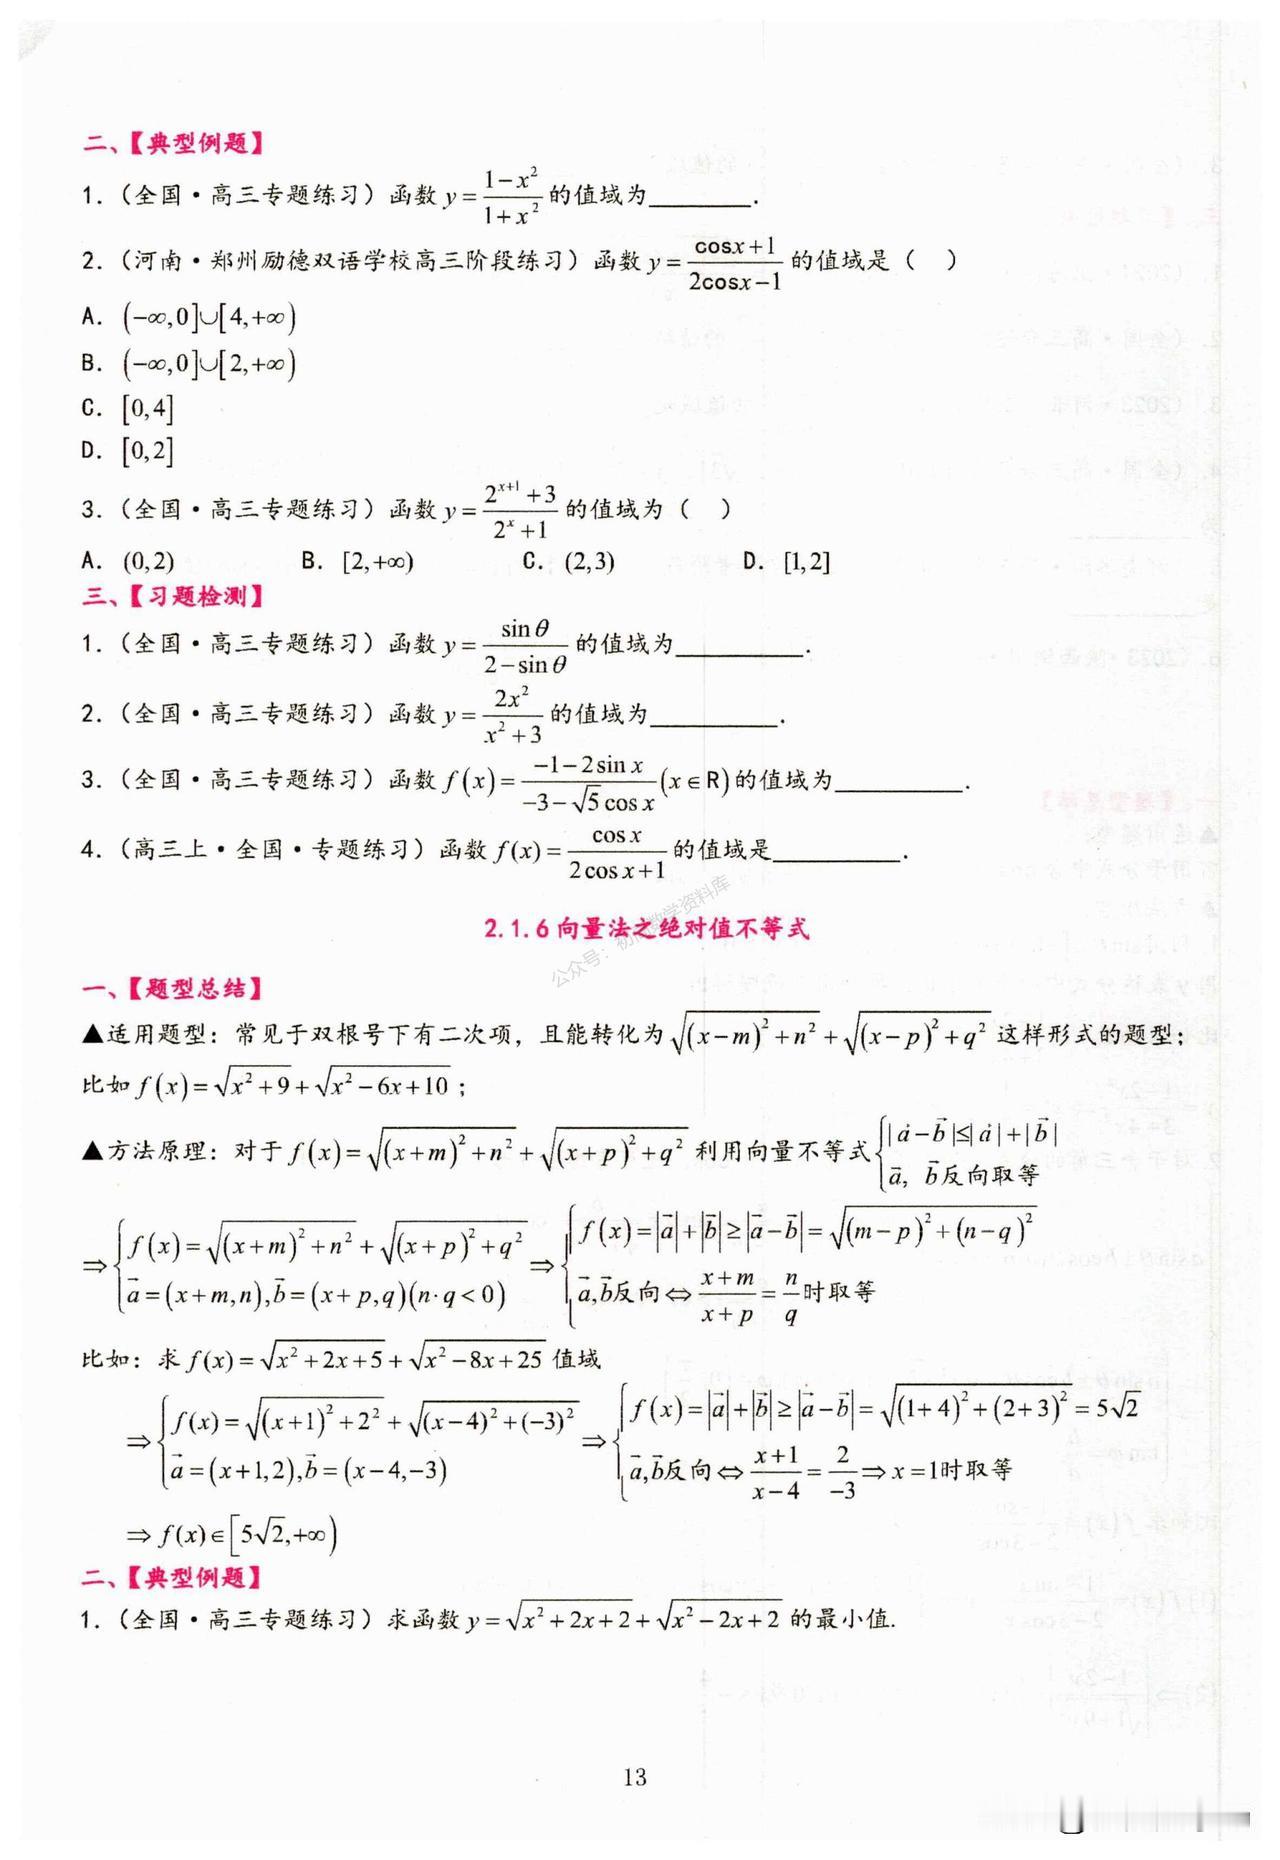 二、【典型例题】
1.（全国·高三专题练习）函数 y=\frac{1-x^2}{1+x^2} 的值域为________.
2.（河南·郑州励德双语学校高三阶段练习）函数 y=\frac{cosx+1}{2cosx-1} 的值域是（ ）
A. (-∞,0]∪[4,+∞)
B. (-∞,0]∪[2,+∞)
C. [0,4]
D. [0,2]
3.（全国·高三专题练习）函数 y=\frac{2^{x+1}+3}{2^x+1} 的值域为（ ）
A. (0,2) B. [2,+∞) C. (2,3) D. [1,2]
三、【习题检测】
1.（全国·高三专题练习）函数 y=\frac{sinθ}{2-sinθ} 的值域为__________.
2.（全国·高三专题练习）函数 y=\frac{2x^2}{x^2+3} 的值域为__________.
3.（全国·高三专题练习）函数 f(x)=\frac{-1-2sin x}{-3-\sqrt{5}cos x}(x∈R)的值域为__________.
4.（高三上·全国·专题练习）函数 f(x)=\frac{cos x}{2cos x+1} 的值域是__________.
公众号：初高数学资料库
2.1.6 向量法之绝对值不等式
一、【题型总结】
▲适用题型：常见于双根号下有二次项，且能转化为 \sqrt{(x-m)^2+n^2}+\sqrt{(x-p)^2+q^2} 这样形式的题型；
比如 f(x)=\sqrt{x^2+9}+\sqrt{x^2-6x+10}；
▲方法原理：对于 f(x)=\sqrt{(x+m)^2+n^2}+\sqrt{(x+p)^2+q^2} 利用向量不等式 { |\vec{a}-\vec{b}|≤|\vec{a}|+|\vec{b}| ; \vec{a}, \vec{b}反向取等
⇒ { f(x)=\sqrt{(x+m)^2+n^2}+\sqrt{(x+p)^2+q^2} ; \vec{a}=(x+m,n),\vec{b}=(x+p,q)(n·q<0) ⇒ { f(x)=|\vec{a}|+|\vec{b}|≥|\vec{a}-\vec{b}|=\sqrt{(m-p)^2+(n-q)^2} ; \vec{a},\vec{b}反向⇔\frac{x+m}{x+p}=\frac{n}{q}时取等
比如：求 f(x)=\sqrt{x^2+2x+5}+\sqrt{x^2-8x+25} 值域
⇒ { f(x)=\sqrt{(x+1)^2+2^2}+\sqrt{(x-4)^2+(-3)^2} ; \vec{a}=(x+1,2),\vec{b}=(x-4,-3) ⇒ { f(x)=|\vec{a}|+|\vec{b}|≥|\vec{a}-\vec{b}|=\sqrt{(1+4)^2+(2+3)^2}=5\sqrt{2} ; \vec{a},\vec{b}反向⇔\frac{x+1}{x-4}=\frac{2}{-3}⇒x=1时取等
⇒ f(x)∈[5\sqrt{2},+∞)
二、【典型例题】
1.（全国·高三专题练习）求函数 y=\sqrt{x^2+2x+2}+\sqrt{x^2-2x+2} 的最小值.
13